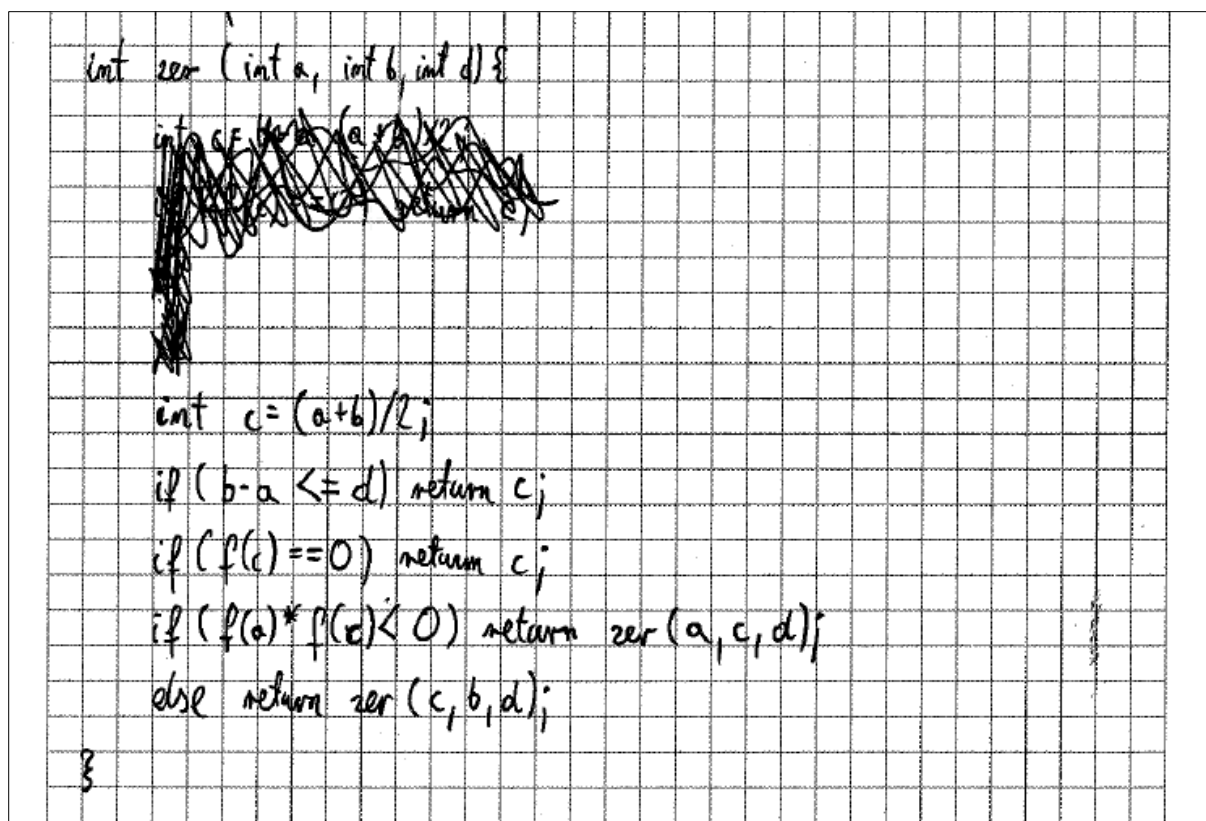 int zer (int a, int b, int d) {
int c = (a+b)/2;
if (b-a <= d) return c;
if (f(c) == 0) return c;
if (f(a) * f(c) < 0) return zer (a, c, d);
else return zer (c, b, d);
}